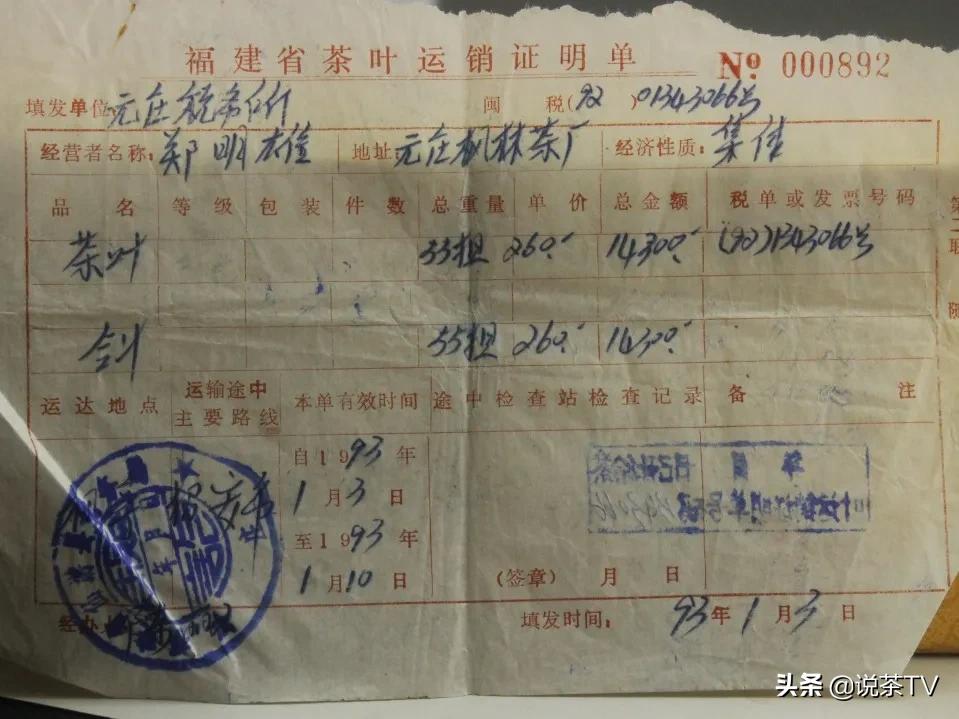 福建省茶叶运销证明单 No 000892
填发单位: 元庄税务所 闽税(92)01343066号
经营者名称: 郑明雄 地址 元庄枫林茶厂 经济性质: 集体
品名 等级 包装 件数 总重量 单价 总金额 税单或发票号码
茶叶 55担 260. 14300. (92)1343066号
合计 55担 260. 14300.
运达地点 运输途中主要路线 本单有效时间 途中检查站检查记录 备注
自1993年
1月3日
至1993年
1月10日
(签章) 月 日
经办
填发时间: 93年1月3日
第二联
头条 @说茶TV